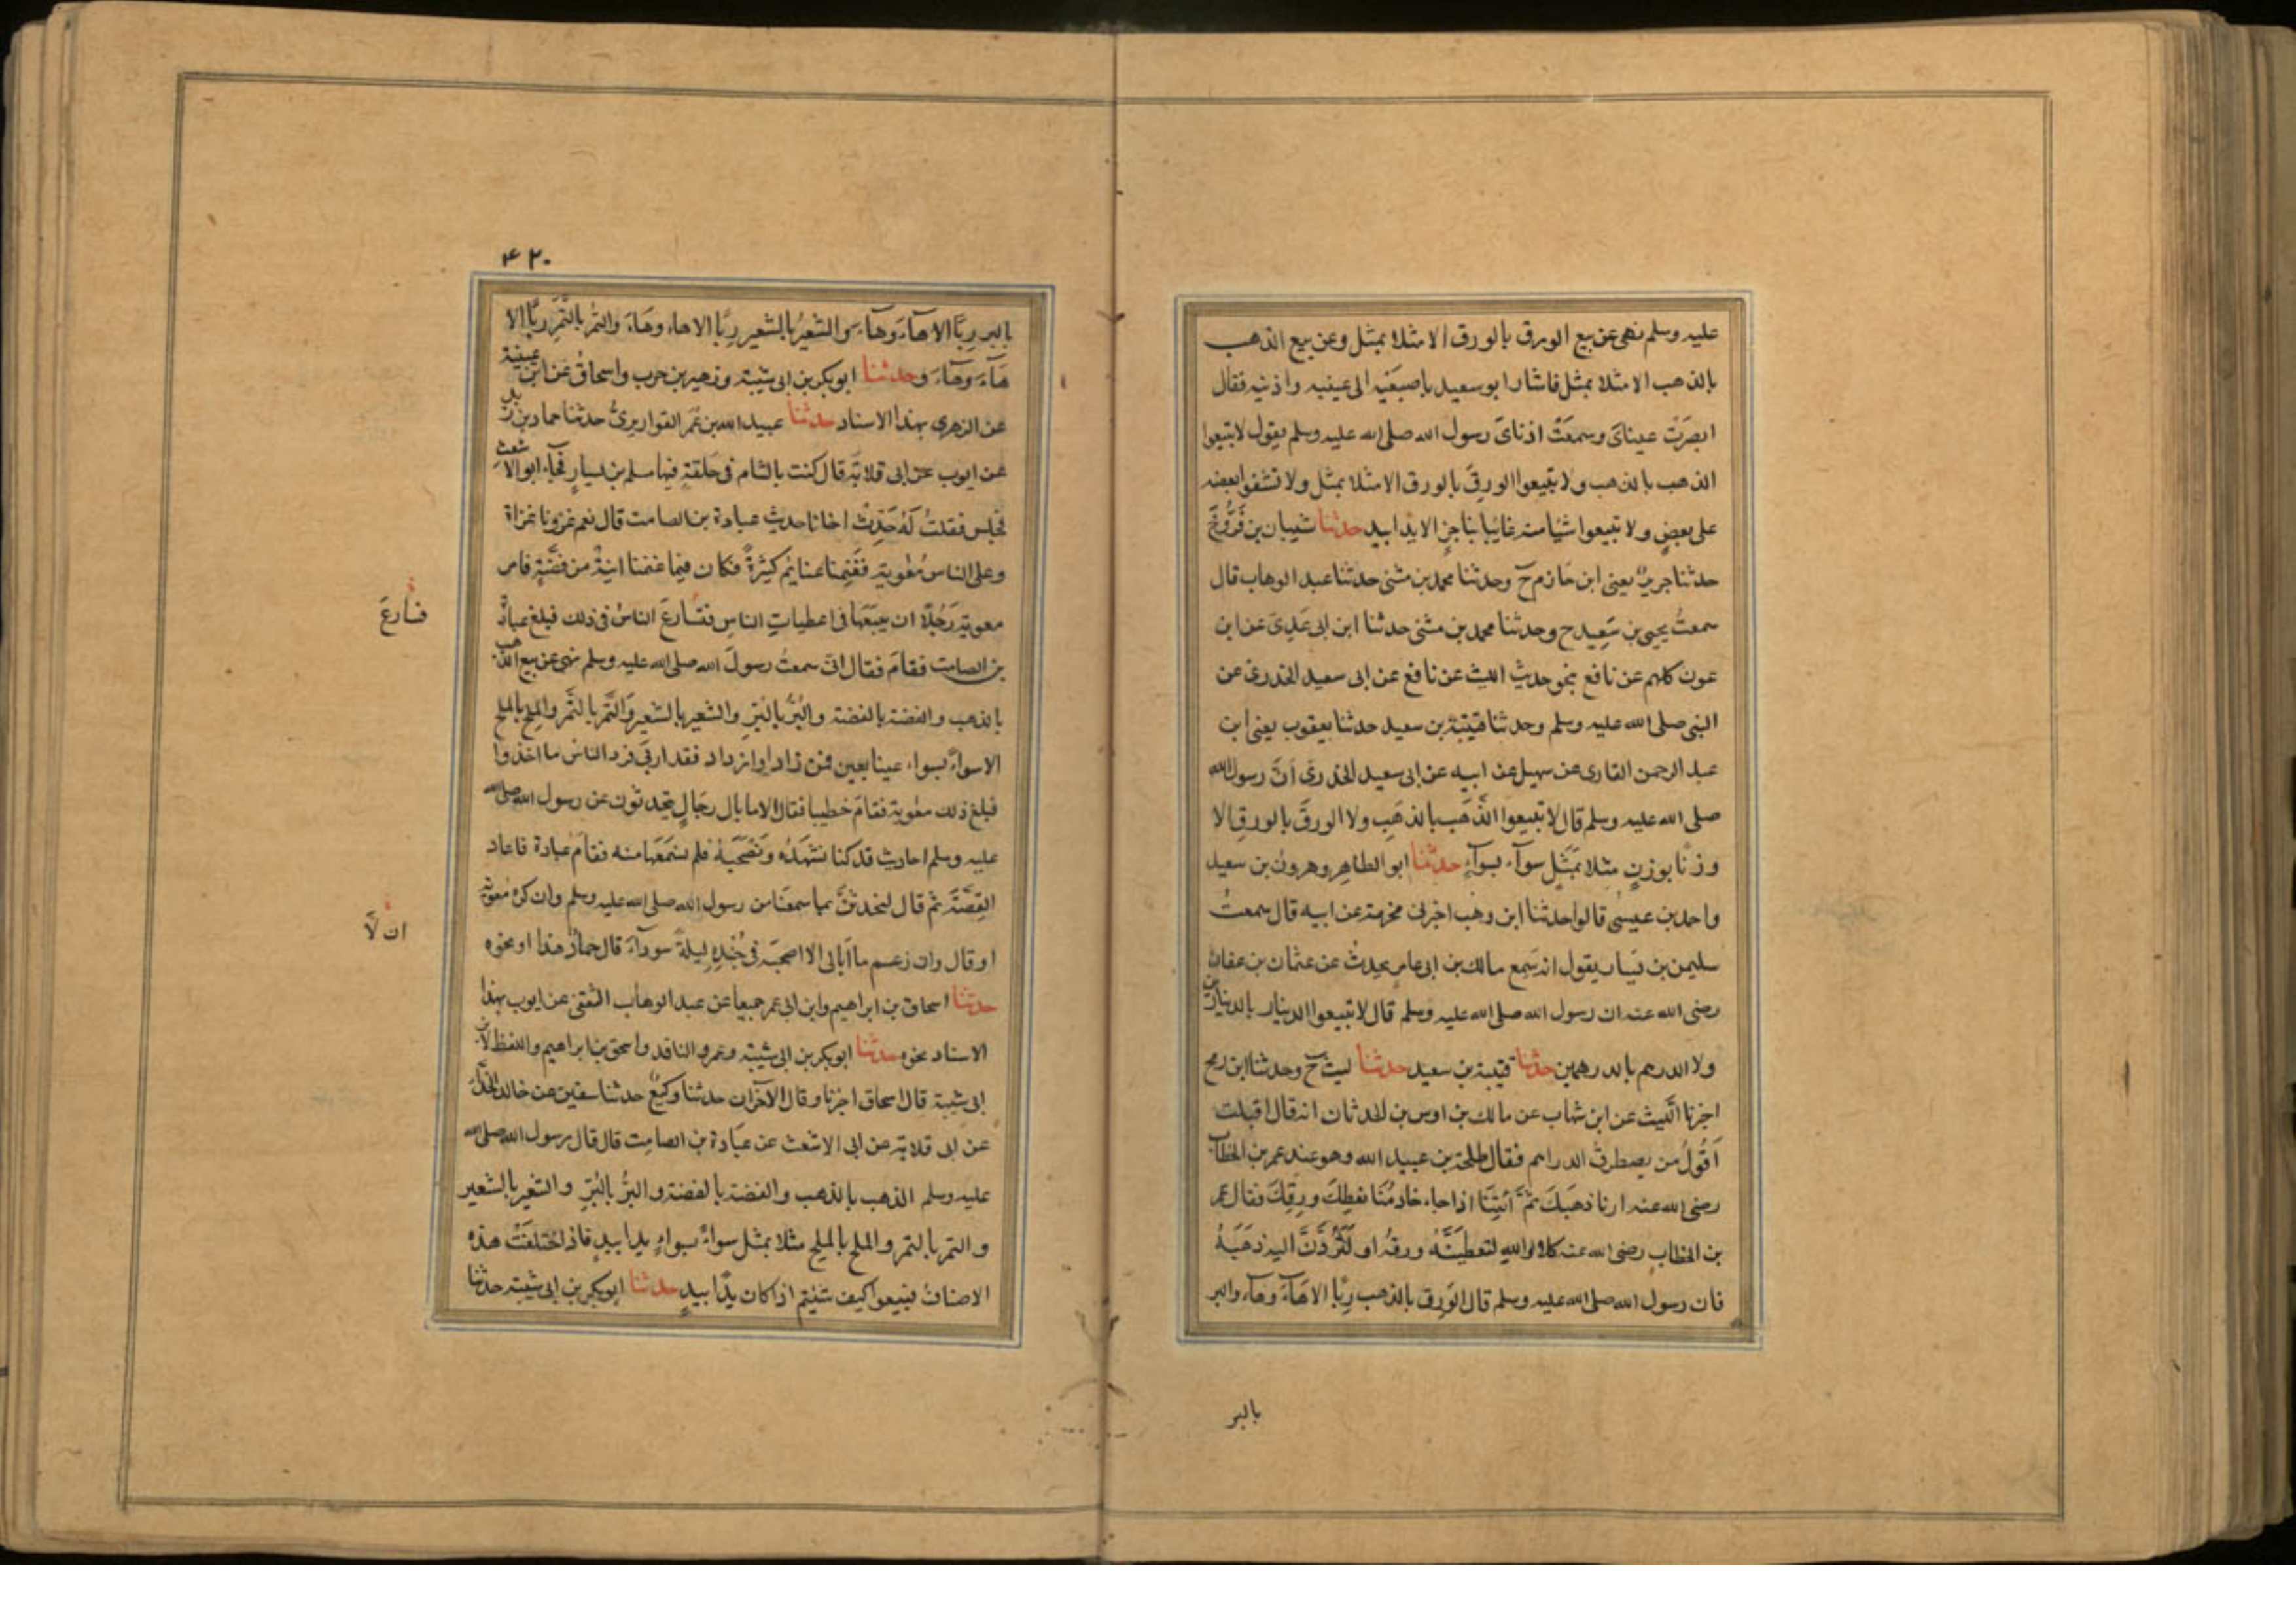 عليه وسلم نهى عن بيع الورق بالورق الا مثلا بمثل وعن بيع الذهب
بالذهب الا مثلا بمثل فاشار ابو سعيد باصبَعَيْه الى عينيه واذنيه فقال
ابصَرَتْ عيناىَ وسمعَتْ اذناىَ رسول الله صلى الله عليه وسلم يقول لا تبيعوا
الذهب بالذهب ولا تبيعوا الورِقَ بالورق الا مثلا بمثل ولا تشفوا بعضه
على بعضٍ ولا تبيعوا شيًا منه غائبا بناجزٍ الا يدا بيد حدثنا شيبان بن فَرُّوخَ
حدثنا جريرٌ يعنى ابن حازم ح وحدثنا محمد بن مثنى حدثنا عبد الوهاب قال
سمعتُ يحيى بن سَعِيد ح وحدثنا محمد بن مثنى حدثنا ابن ابى عَدِىَ عن ابن
عون كلهم عن نافع بنحو حديث الليث عن نافع عن ابى سعيد الخدرى عن
النبى صلى الله عليه وسلم وحدثنا قتيبة بن سعيد حدثنا يعقوب يعنى ابن
عبد الرحمن القارى عن سهيل عن ابيه عن ابى سعيد الخدرى اَنَّ رسول الله
صلى الله عليه وسلم قال لا تبيعوا الذَّهَب بالذهَبِ ولا الورِقَ بالورِقِ الا
وزنًا بوزنٍ مثلا بمَثْلٍ سوآء بسوآءٍ حدثنا ابو الطاهِرِ وهرونُ بن سعيد
واحمد بن عيسٰى قالوا حدثنا ابن وهب اخبرنى مخرمة عن ابيه قال سمعتُ
سليمن بن يسار يقول انه سَمِع مالك بن ابى عامرٍ يحدثُ عن عثمان بن عفان
رضى الله عنه ان رسول الله صلى الله عليه وسلم قال لا تبيعوا الدينار بالدينارين
ولا الدرهم بالدرهمين حدثنا قتيبة بن سعيد حدثنا ليث ح وحدثنا ابن رمح
اخبرنا الَّليث عن ابن شهاب عن مالك بن اوس بن الحدثان انه قال اقبلت
اَقُولُ من يصطرف الدراهم فقال طلحة بن عبيد الله وهو عند عمر بن الخطاب
رضى الله عنه ارنا ذهبَكَ ثمَّ ائتِنَا اذا جاء خادمُنَا نعطِكَ ورِقِكَ فقال عمر
بن الخطاب رضى الله عنه كلا والله لتعطيَنَّهُ ورقهُ او لَتَرُدَّنَّ اليه ذهَبَهُ
فان رسول الله صلى الله عليه وسلم قال الوَرِق بالذهب رِبًا الا هَآءَ وهآء والبر
بالبر
٤٢٠
بالبر رِبًا الا هآءَ وهآءَ والشعيرُ بالشعير رِبًا الا هاء وهَاءَ والتمر بالتَّمرِ ربًا الا
هَآءَ وهَآءَ وحدثنا ابو بكر بن ابى شيبة وزهير بن حرب واسحاقُ عن ابن عيينة
عن الزهرى بهذا الاسناد حدثنا عبيد الله بن عُمَر القواريرىُّ حدثنا حماد بن زيد
عن ايوب عن ابى قلابَة قال كنت بالشام فى حَلقةٍ فيها مسلم بن يسارٍ فجآء ابو الاشعث
فجلس فقلتُ لَهُ حَدِّثْ اخانا حديث عبادة بن الصامت قال نعم غزونا غزاة
وعلى الناس مُعٰوية فغَنِمنا غنايم كثيرةً فكان فيما غنمنا انيةٌ من فضَّةٍ فامر
معوية رَجُلًا ان يبيَعَها فى اعطياتِ الناسِ فتسارعَ الناسُ فى ذلك فبلغ عبادةَ
بن الصامت فقامَ فقال انى سمعتُ رسولَ الله صلى الله عليه وسلم نهى عن بيع الذهب
بالذهب والفضة بالفضة والبُرُّ بالبُرِّ والشعير بالشعير والتَّمر بالتَّمر والمِلح بالملح
الا سواءً بسواء عينا بعين فمن زاد او ازداد فقد اربى فرد الناسُ ما اخذوا
فبلغ ذلك معٰوية فقام خطيبا فقال الا ما بال رجَالٍ يتحدثون عن رسول الله صلى الله
عليه وسلم احاديث قد كنا نشهَدُه ونَصْحَبُهُ فلم نسمَعَها منه فقامَ عُبادة فاعاد
القِصَّةَ ثم قال لنحدثنَّ بما سمعنَا من رسول الله صلى الله عليه وسلم وان كره مُعوية
او قال وان زعم ما اُبالى الا اصحبَه فى جُندِهِ ليلةً سودآءَ قال حمادٌ هذا او نحوه
حدثنا اسحاق بن ابراهيم وابن ابى عمر جميعاً عن عبد الوهاب الثقفى عن ايوب بهذا
الاسناد نحوه حدثنا ابو بكر بن ابى شيبة وعمرو الناقد واسحق بن ابراهيم واللفظ لابن
ابى شيبة قال اسحاق اخبرنا وقال الآخران حدثنا وكيعٌ حدثنا سفين عن خالد الحذَّاء
عن ابى قلابة عن ابى الاشعث عن عبَادة بن الصامِت قال قال رسول الله صلى الله
عليه وسلم الذهب بالذهب والفضة بالفضة والبرُّ بالبُرِّ والشعير بالشعير
والتمر بالتمر والملح بالملح مثلا بمثل سواءً بسواءٍ يدا بيدٍ فاذا اختلفَتْ هذه
الاصنافُ فبيعوا كيف شئتم اذا كان يدًا بيدٍ حدثنا ابو بكر بن ابى شيبة حدثنا
فسارعَ
ان لَّا